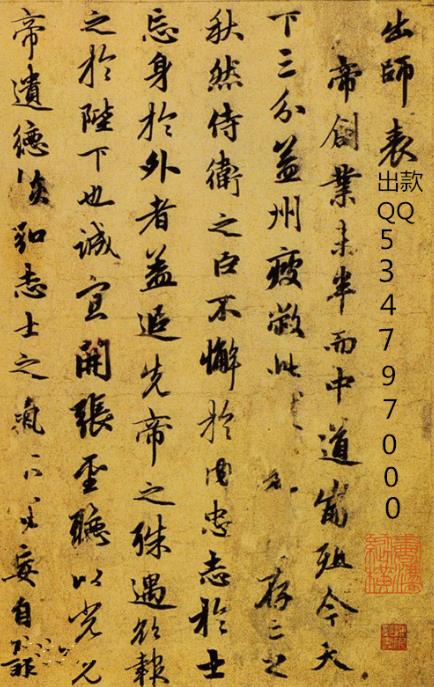 出師表
出款
QQ
534797000
帝創業未半而中道崩殂今天
下三分益州疲敝此存亡之
秋然侍衛之臣不懈於內忠志於士
忘身於外者蓋追先帝之殊遇欲報
之於陛下也誠宜開張聖聽以光先
帝遺德恢弘志士之氣不宜妄自